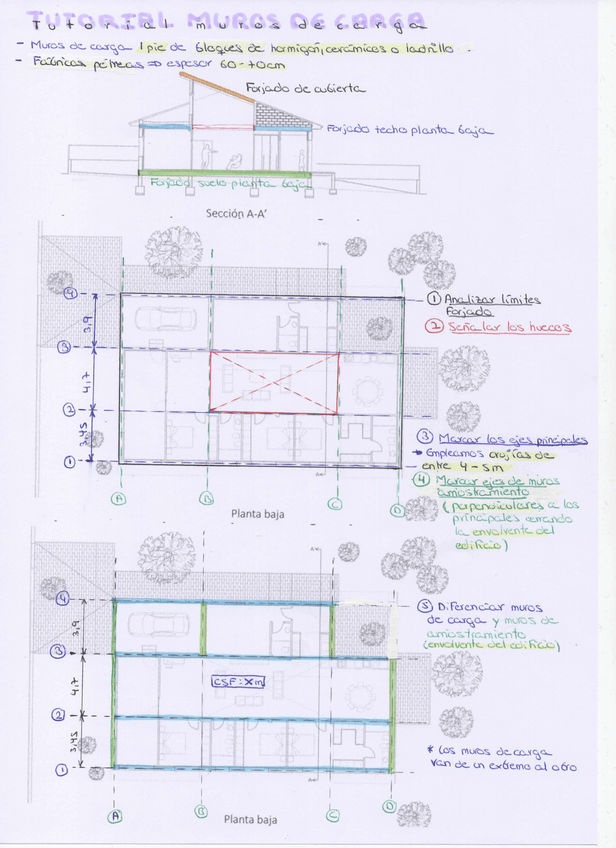 TUTORIAL MUROS DE CARGA
Tutorial muros de carga
- Muros de carga 1 pie de bloques de hormigón, cerámicos o ladrillo.
- Fábricas pétreas ⇒ espesor 60-70cm
Forjado de cubierta
Forjado techo planta baja
Forjado suelo planta baja
Sección A-A'
4
3,9
3
4,7
2
3,45
1
A
B
C
D
Planta baja
1 Analizar límites
Forjado
2 Señalar los huecos
3 Marcar los ejes principales
→ Empleamos crujías de
entre 4-5m
4 Marcar ejes de muros
arriostramiento
(perpendiculares a los
principales cerrando
la envolvente del
edificio)
4
3,9
3
4,7
2
3,45
1
CSF: X in
A
B
C
D
Planta baja
5 Diferenciar muros
de carga y muros de
arriostramiento
(envolvente del edificio)
* Los muros de carga
van de un extremo al otro